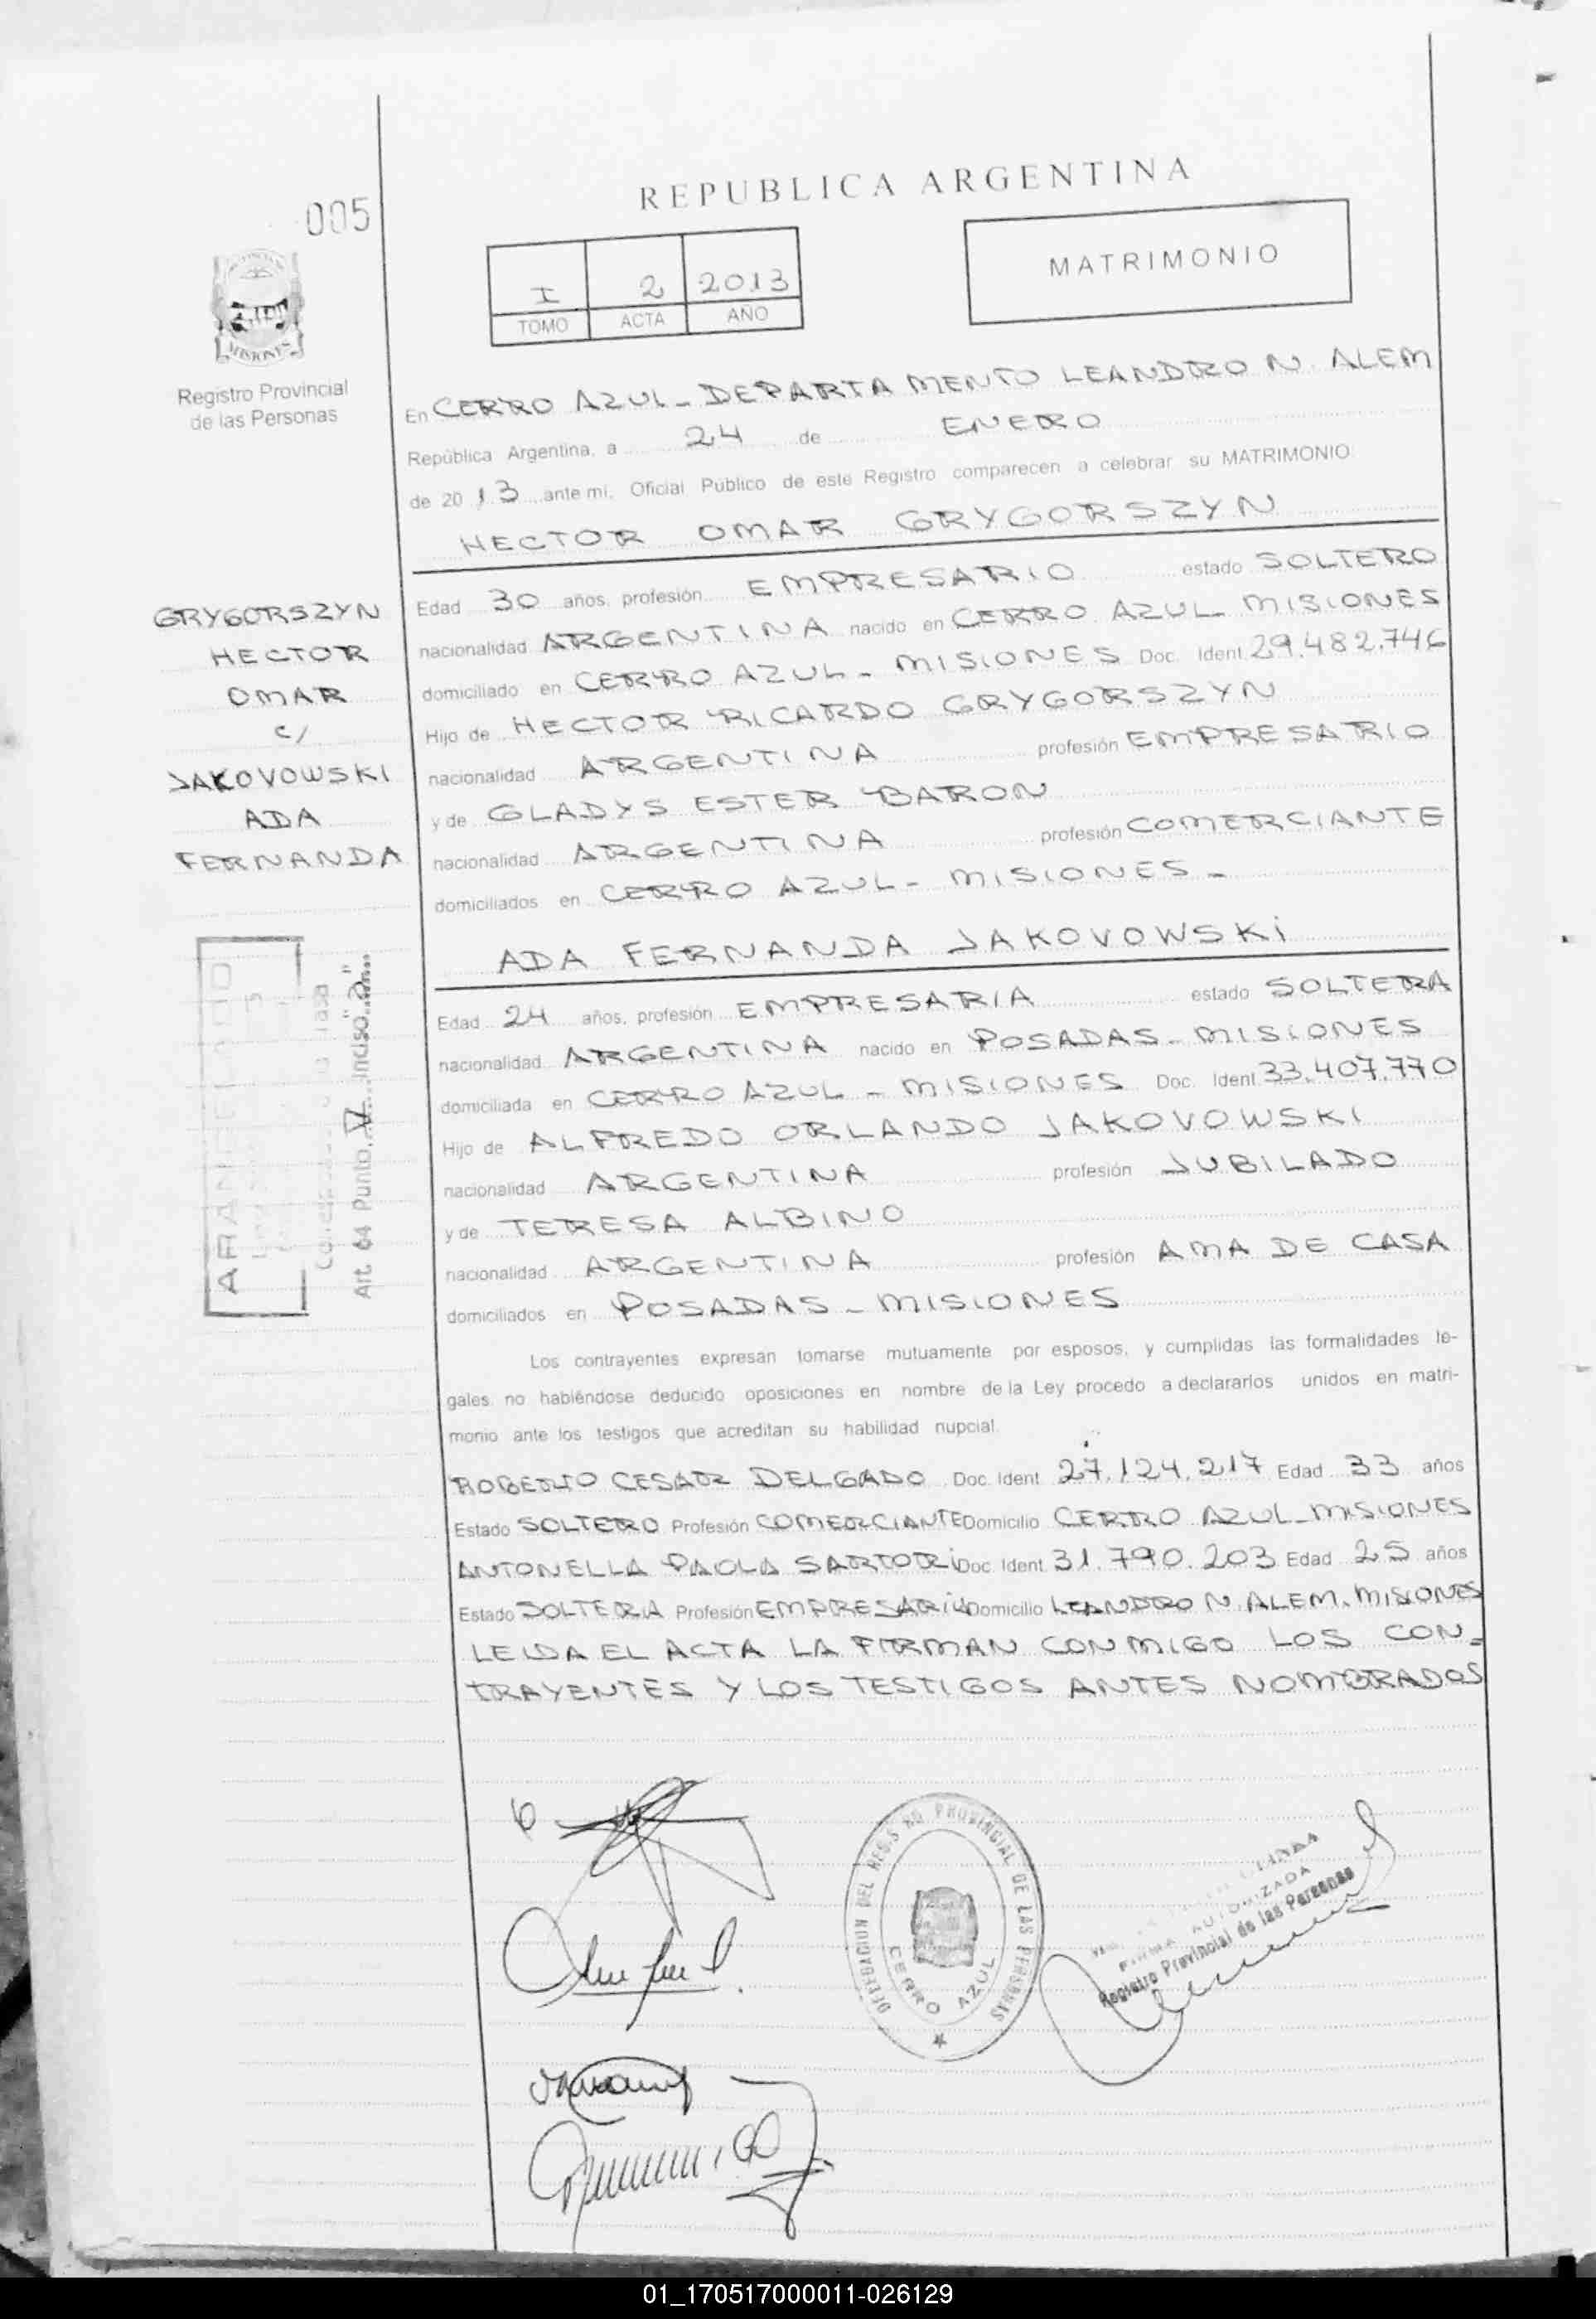 REPUBLICA ARGENTINA
005
MATRIMONIO
I 2 2013
TOMO ACTA AÑO
MISIONES
Registro Provincial
de las Personas
En CERRO AZUL - DEPARTAMENTO LEANDRO N. ALEM
República Argentina, a 24 de ENERO
de 2013 ante mi, Oficial Público de este Registro comparecen a celebrar su MATRIMONIO
HECTOR OMAR GRYGORSZYN
Edad 30 años, profesión EMPRESARIO estado SOLTERO
nacionalidad ARGENTINA nacido en CERRO AZUL - MISIONES
domiciliado en CERRO AZUL - MISIONES Doc. Ident. 29.482.746
Hijo de HECTOR RICARDO GRYGORSZYN
nacionalidad ARGENTINA profesión EMPRESARIO
y de GLADYS ESTER BARON
nacionalidad ARGENTINA profesión COMERCIANTE
domiciliados en CERRO AZUL - MISIONES -
GRYGORSZYN
HECTOR
OMAR
C/
JAKOVOWSKI
ADA
FERNANDA
ADA FERNANDA JAKOVOWSKI
Edad 24 años, profesión EMPRESARIA estado SOLTERA
nacionalidad ARGENTINA nacido en POSADAS - MISIONES
domiciliada en CERRO AZUL - MISIONES Doc. Ident. 33.407.770
Hijo de ALFREDO ORLANDO JAKOVOWSKI
nacionalidad ARGENTINA profesión JUBILADO
y de TERESA ALBINO
nacionalidad ARGENTINA profesión AMA DE CASA
domiciliados en POSADAS - MISIONES
Art. 64 Punto IV inciso "a"
Los contrayentes expresan tomarse mutuamente por esposos, y cumplidas las formalidades le-
gales, no habiéndose deducido oposiciones en nombre de la Ley procedo a declararlos unidos en matri-
monio ante los testigos que acreditan su habilidad nupcial.
ROBERTO CESAR DELGADO Doc. Ident. 27.124.217 Edad 33 años
Estado SOLTERO Profesión COMERCIANTE Domicilio CERRO AZUL - MISIONES
ANTONELLA PAOLA SARTORI Doc. Ident. 31.790.203 Edad 25 años
Estado SOLTERA Profesión EMPRESARIA Domicilio LEANDRO N. ALEM. MISIONES
LEIDA EL ACTA LA FIRMAN CONMIGO LOS CON-
TRAYENTES Y LOS TESTIGOS ANTES NOMBRADOS
DELEGACION DEL REGISTRO PROVINCIAL DE LAS PERSONAS
CERRO AZUL
FIRMA AUTORIZADA
Registro Provincial de las Personas
01_170517000011-026129